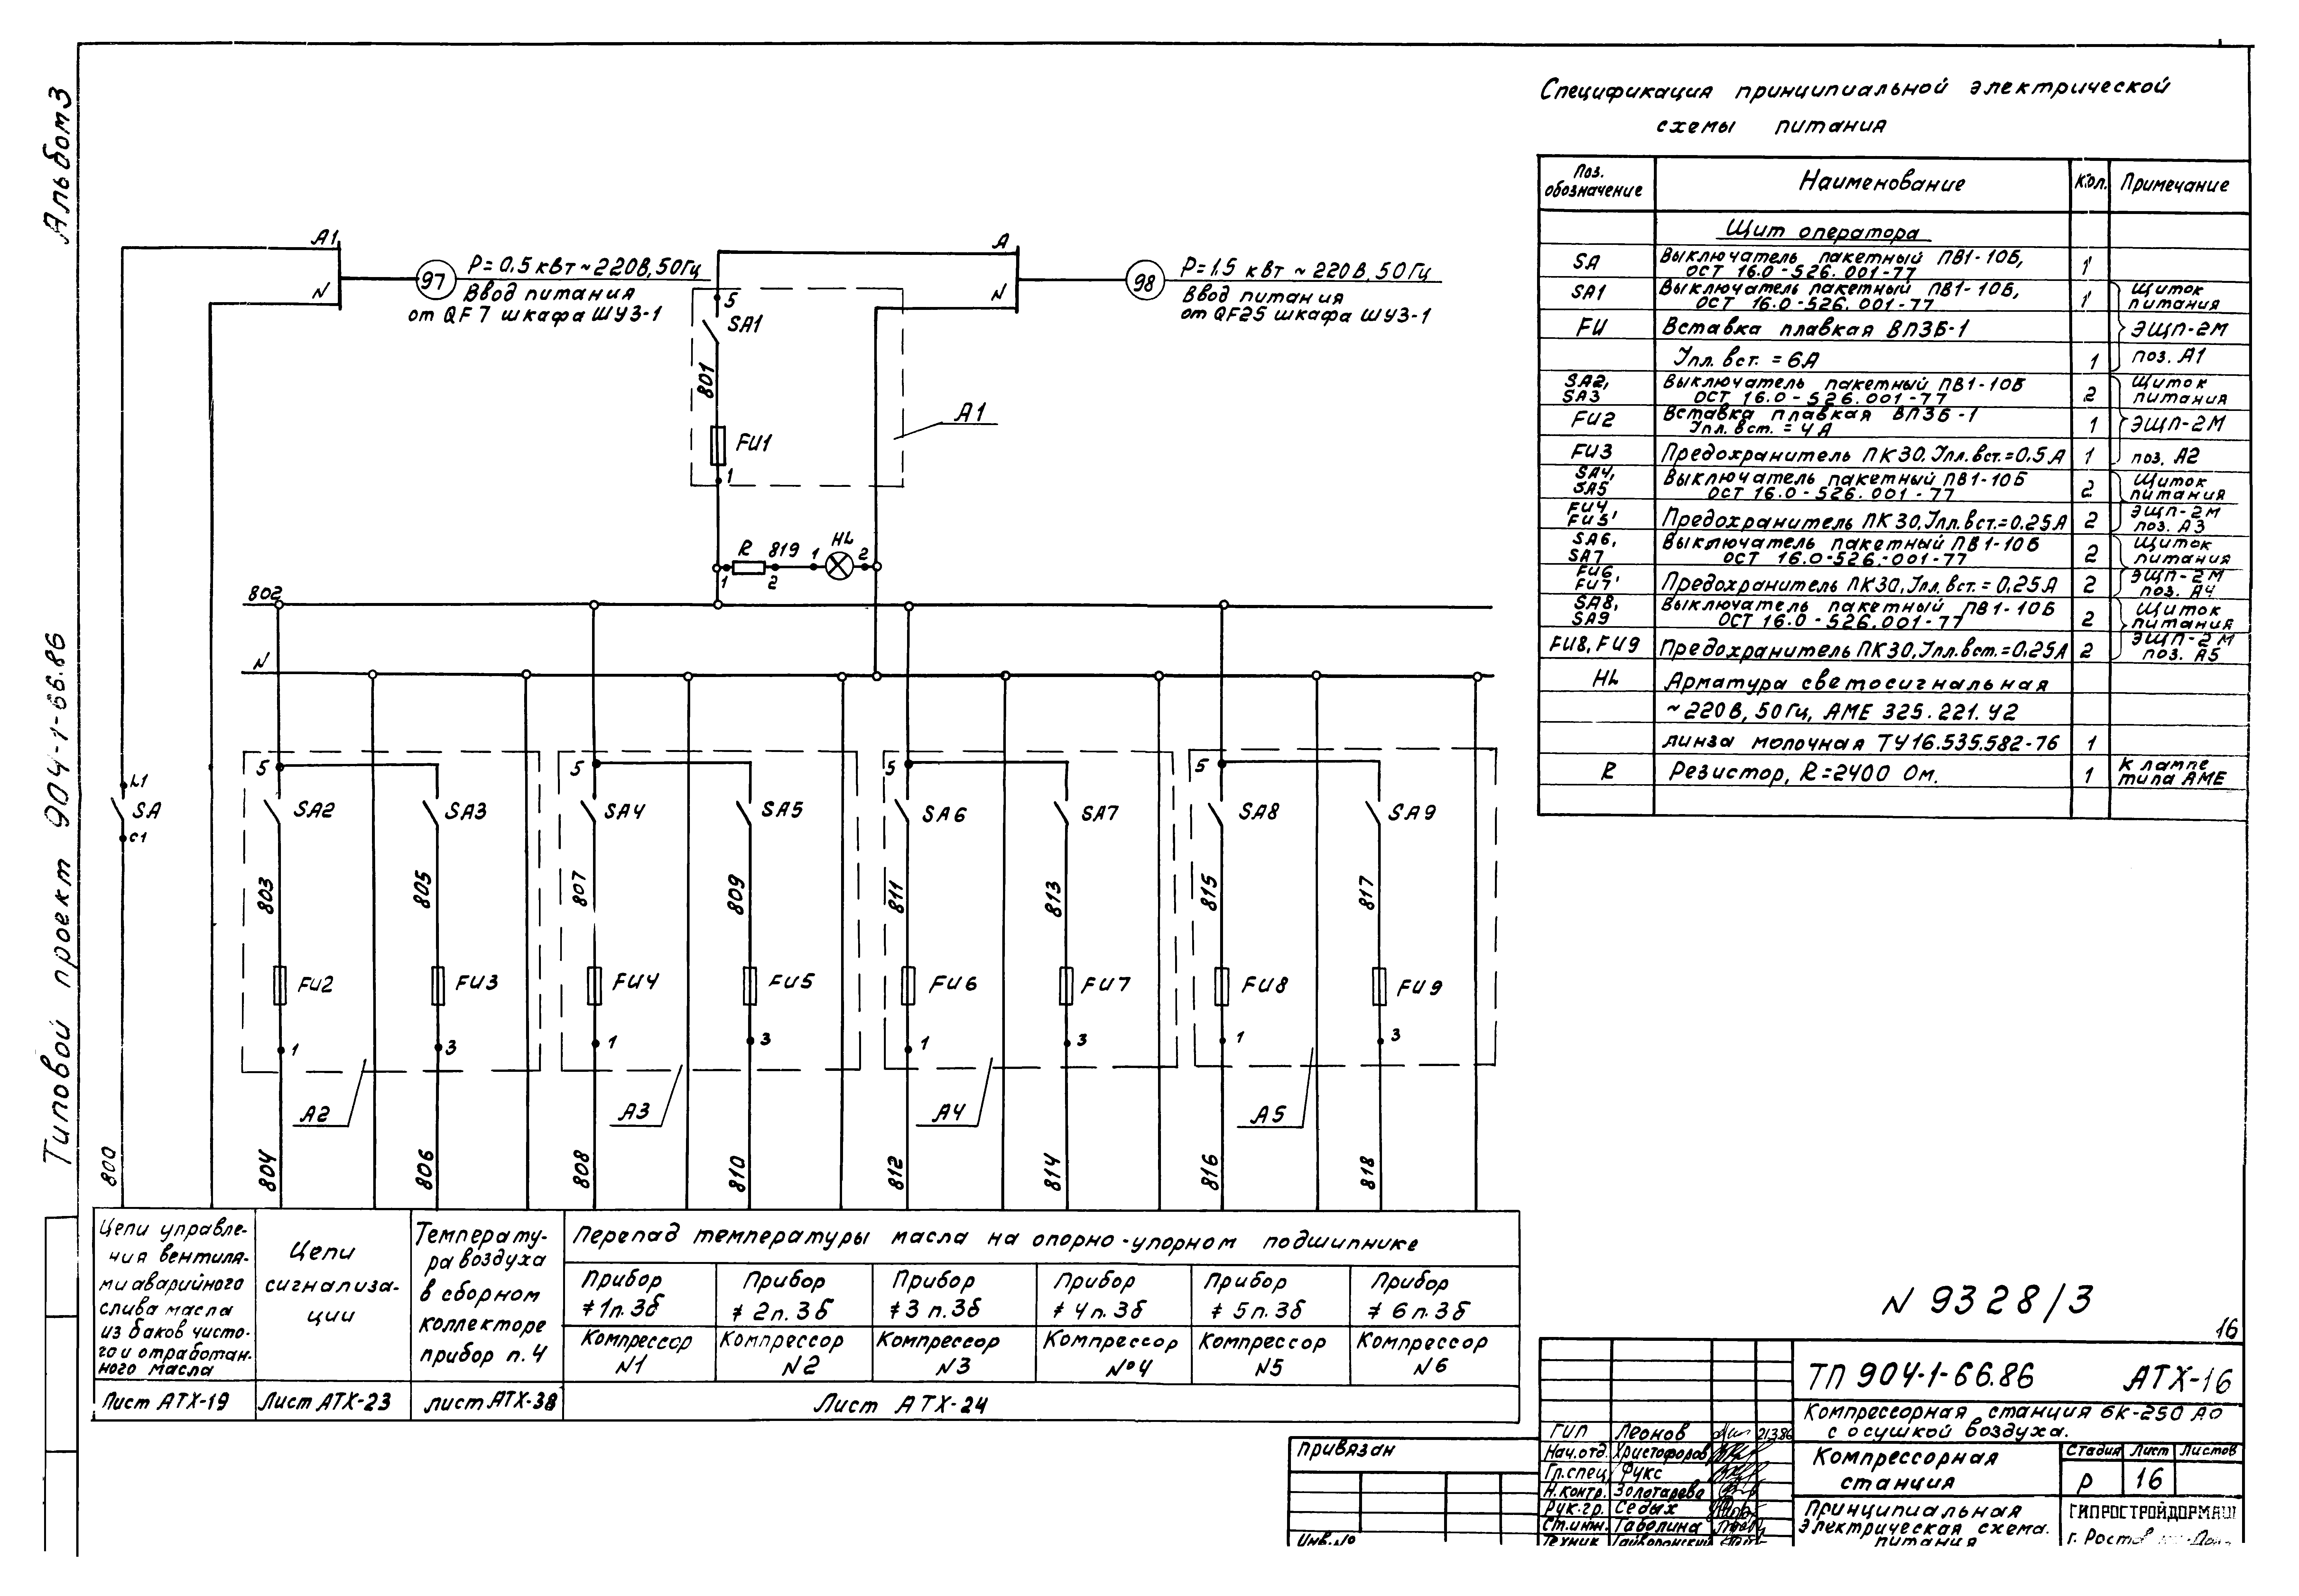 Альбом 3
Типовой проект 904-1-66.86
Спецификация принципиальной электрической
схемы питания
Поз. обозначение Наименование Кол. Примечание
Щит оператора
SA Выключатель пакетный ПВ1-10Б, ОСТ 16.0-526.001-77 1
SA1 Выключатель пакетный ПВ1-10Б, ОСТ 16.0-526.001-77 1 Щиток питания
FU Вставка плавкая ВПЗБ-1 ЭЩП-2М
Iпл. вст. = 6А 1 поз. А1
SA2, SA3 Выключатель пакетный ПВ1-10Б ОСТ 16.0-526.001-77 2 Щиток питания
FU2 Вставка плавкая ВПЗБ-1 Iпл. вст. = 4А 1 ЭЩП-2М
FU3 Предохранитель ПК30, Iпл. вст. = 0.5А 1 поз. А2
SA4, SA5 Выключатель пакетный ПВ1-10Б ОСТ 16.0-526.001-77 2 Щиток питания
FU4, FU5 Предохранитель ПК30, Iпл. вст. = 0.25А 2 ЭЩП-2М поз. А3
SA6, SA7 Выключатель пакетный ПВ1-10Б ОСТ 16.0-526.001-77 2 Щиток питания
FU6, FU7 Предохранитель ПК30, Iпл. вст. = 0.25А 2 ЭЩП-2М поз. А4
SA8, SA9 Выключатель пакетный ПВ1-10Б ОСТ 16.0-526.001-77 2 Щиток питания
FU8, FU9 Предохранитель ПК30, Iпл. вст. = 0.25А 2 ЭЩП-2М поз. А5
HL Арматура светосигнальная
~220В, 50Гц, АМЕ 325.221.У2
линза молочная ТУ16.535.582-76 1
R Резистор, R=2400 Ом. 1 К лампе типа АМЕ
А1
N
97
Р=0.5 кВт ~220В, 50Гц
Ввод питания
от QF7 шкафа ШУЗ-1
А
N
98
Р=1.5 кВт ~220В, 50Гц
Ввод питания
от QF25 шкафа ШУЗ-1
5
SA1
801
А1
FU1
1
R 819 1 HL 2
1 2
802
N
L1
SA
C1
5 5 5 5
SA2 SA3 SA4 SA5 SA6 SA7 SA8 SA9
803 805 807 809 811 813 815 817
FU2 FU3 FU4 FU5 FU6 FU7 FU8 FU9
1 3 1 3 1 3 1 3
А2 А3 А4 А5
800 804 806 808 810 812 814 816 818
Цепи управле-
ния вентиля-
ми аварийного
слива масла
из баков чисто-
го и отработан-
ного масла
Лист АТХ-19
Цепи
сигнализа-
ции
Лист АТХ-23
Температу-
ра воздуха
в сборном
коллекторе
прибор п.4
лист АТХ-38
Перепад температуры масла на опорно-упорном подшипнике
Прибор Прибор Прибор Прибор Прибор Прибор
≠1п.3б ≠2п.3б ≠3п.3б ≠4п.3б ≠5п.3б ≠6п.3б
Компрессор Компрессор Компрессор Компрессор Компрессор Компрессор
N1 N2 N3 №4 N5 N6
Лист АТХ-24
N 9328/3
16
ТП 904-1-66.86 АТХ-16
Компрессорная станция 6К-250 АО
с осушкой воздуха.
Компрессорная
станция
Стадия Лист Листов
Р 16
Принципиальная
электрическая схема.
питания
ГИПРОСТРОЙДОРМАШ
г. Ростов
ГИП Леонов 21.3.86
Нач.отд. Христофоров
Гл.спец. Фукс
Н.контр. Золотарева
Рук.гр. Седых
Ст.инж. Габолина
Техник
Привязан
Инв.№